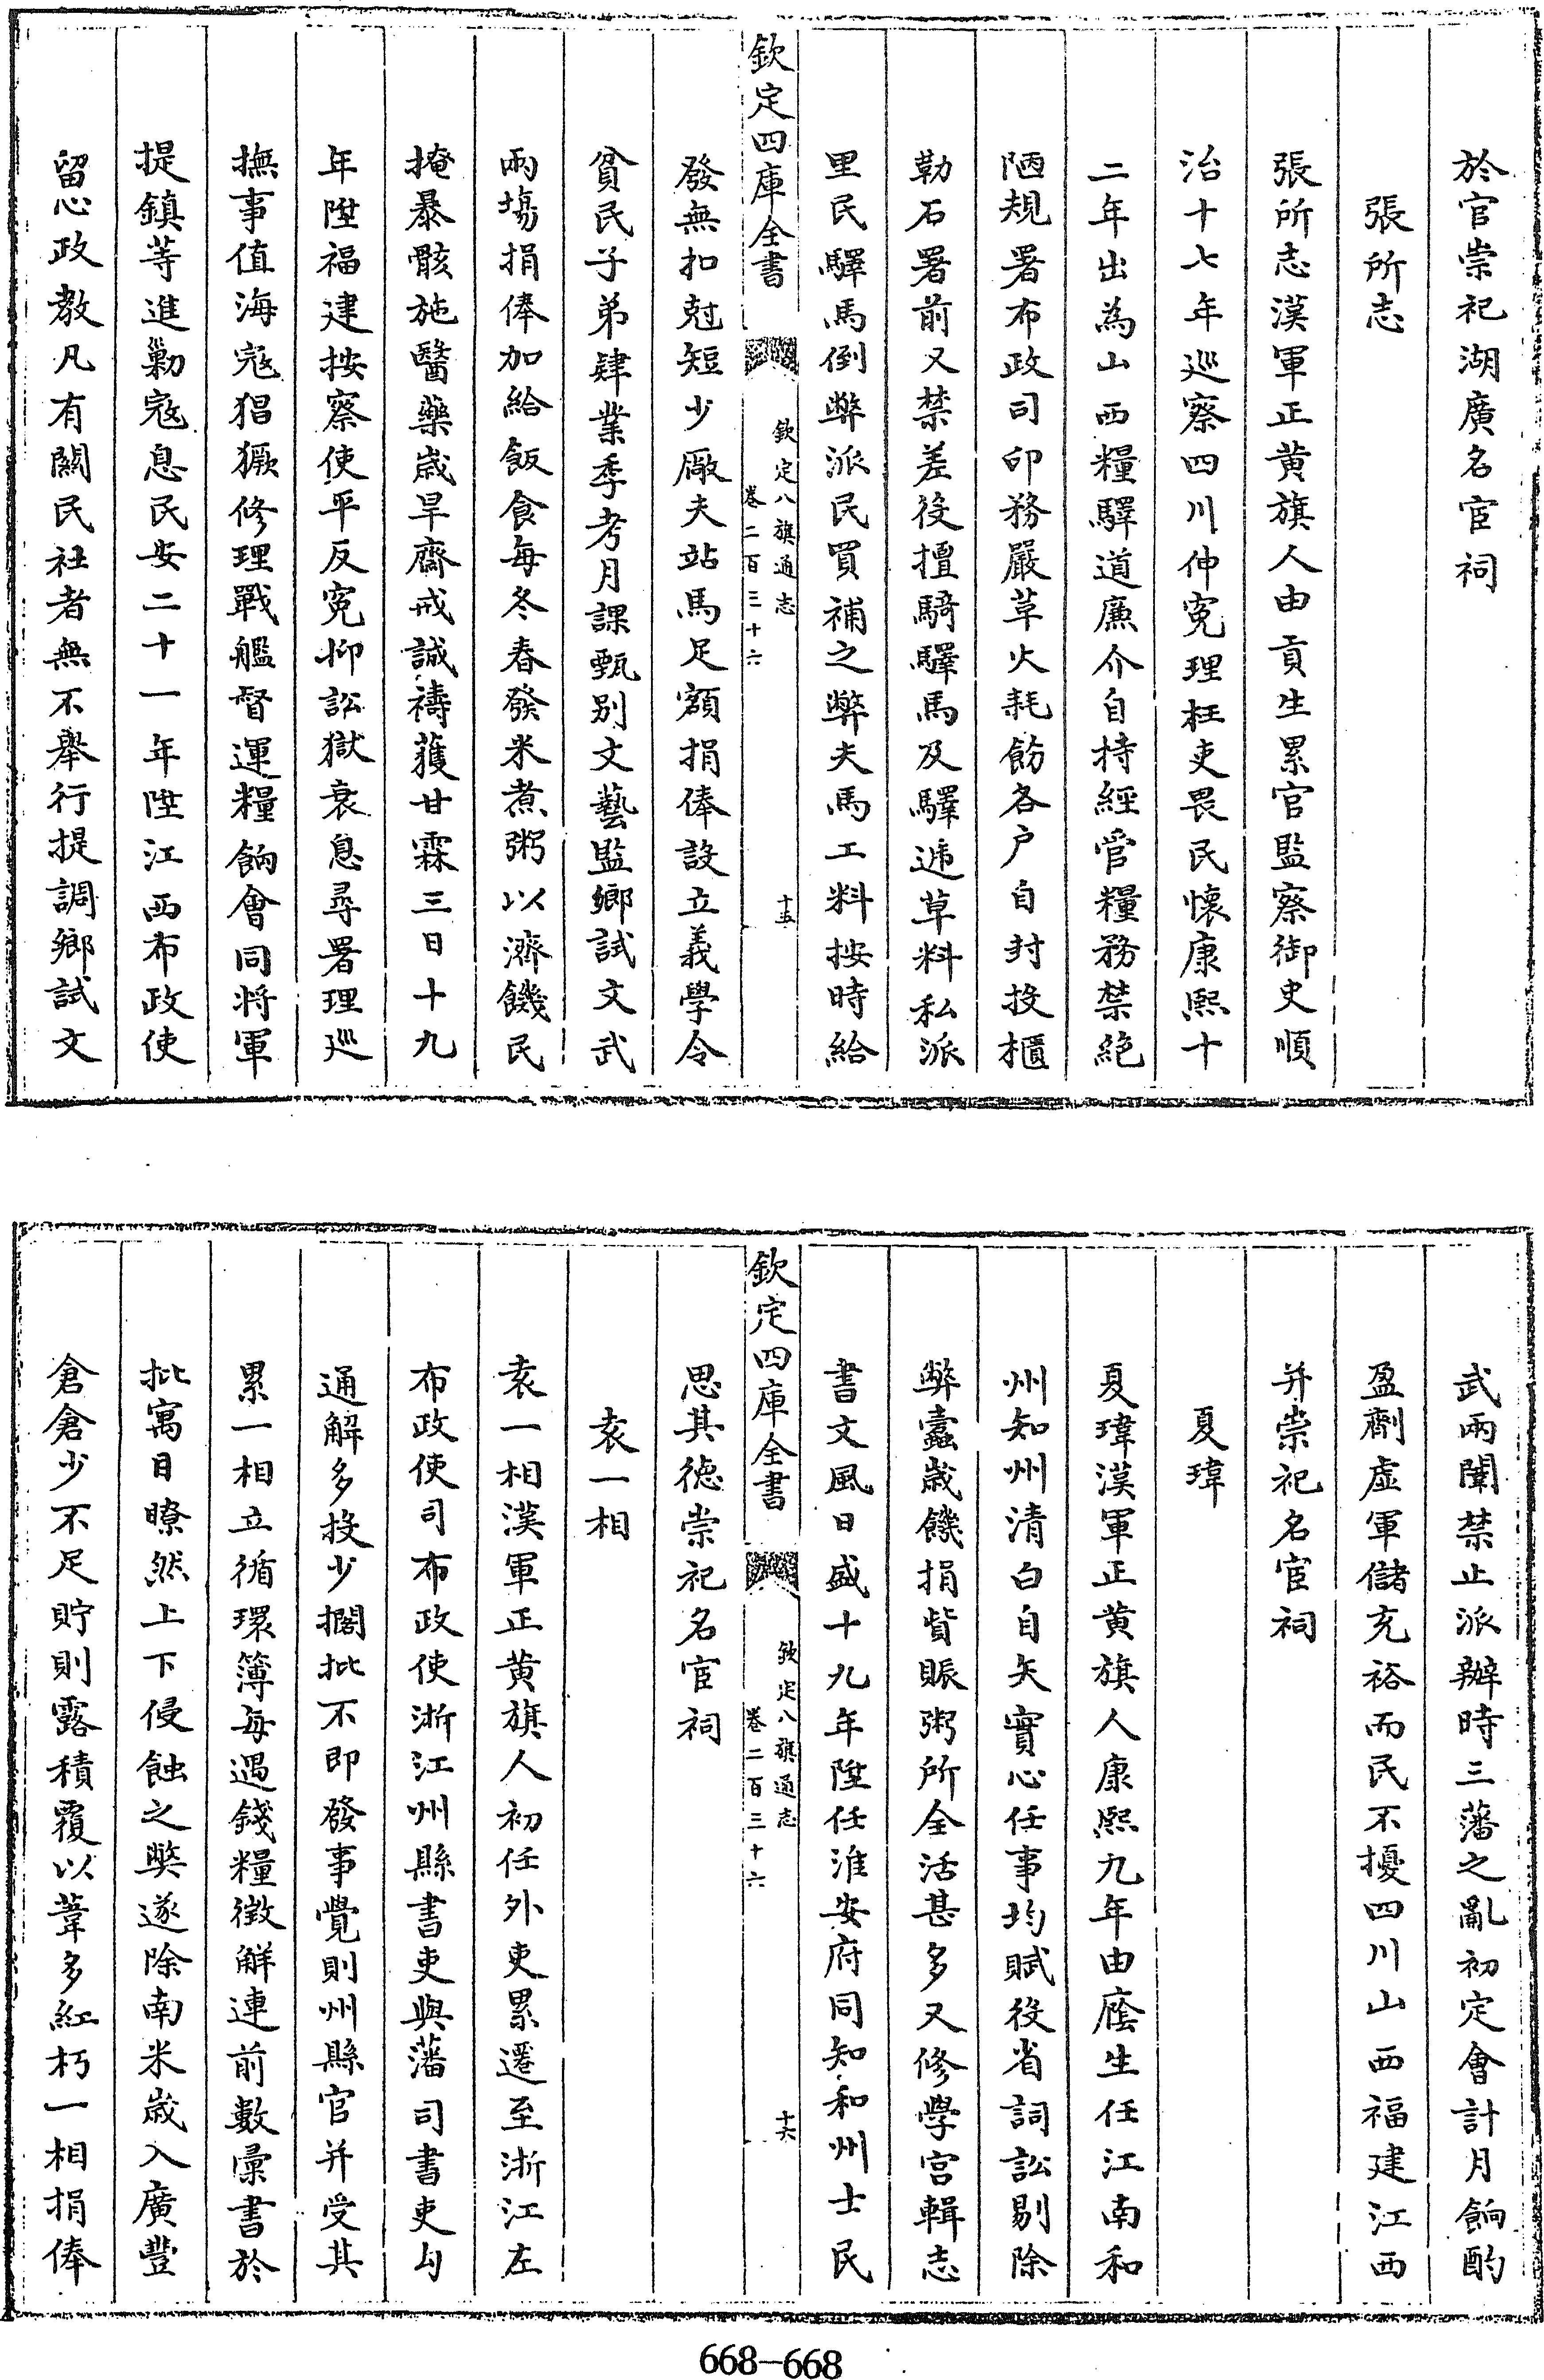 於官崇祀湖廣名宦祠
張所志
張所志漢軍正黄旗人由貢生累官監察御史順
治十七年巡察四川伸寃理枉吏畏民懷康熙十
二年出為山西糧驛道廉介自持經管糧務禁絶
陋規署布政司印務嚴草火耗飭各户自封投櫃
勒石署前又禁差役擅騎驛馬及驛遞草料私派
里民驛馬倒弊派民買補之弊夫馬工料按時給
欽定四庫全書
欽定八旗通志
卷二百三十六
十五
發無扣尅短少厰夫站馬足額捐俸設立義學令
貧民子弟肄業季考月課甄别文藝監鄉試文武
兩塲捐俸加給飯食每冬春發米煮粥以濟饑民
掩暴骸施醫藥歲旱齋戒誠禱獲甘霖三日十九
年陞福建按察使平反寃抑訟獄衰息尋署理巡
撫事值海寇猖獗修理戰艦督運糧餉會同將軍
提鎮等進勦寇息民安二十一年陞江西布政使
留心政教凡有關民社者無不舉行提調鄉試文
武兩闈禁止派辦時三藩之亂初定會計月餉酌
盈劑虛軍儲充裕而民不擾四川山西福建江西
并崇祀名宦祠
夏瑋
夏瑋漢軍正黄旗人康熙九年由廕生任江南和
州知州清白自矢實心任事均賦役省詞訟剔除
弊蠧歲饑捐貲賑粥所全活甚多又修學宫輯志
書文風日盛十九年陞任淮安府同知和州士民
欽定四庫全書
欽定八旗通志
卷二百三十六
十六
思其德崇祀名宦祠
袁一相
袁一相漢軍正黄旗人初任外吏累遷至浙江左
布政使司布政使浙江州縣書吏與藩司書吏勾
通解多投少擱批不即發事覺則州縣官并受其
累一相立循環簿每遇錢糧徴解連前數彚書於
批寓目瞭然上下侵蝕之獘遂除南米歲入廣豐
倉倉少不足貯則露積覆以葦多紅朽一相捐俸
668-668